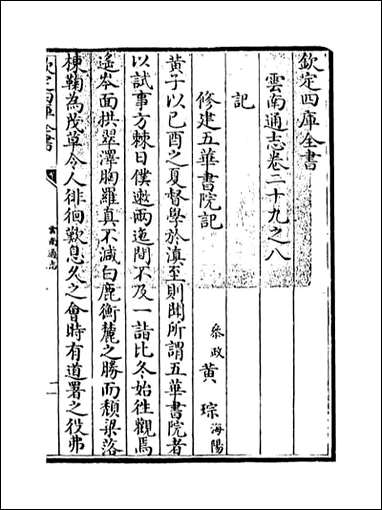 欽定四庫全書
雲南通志卷二十九之八
記
修建五華書院記
叅政 黄 琮 海陽
黄子以己酉之夏督學於滇至則聞所謂五華書院者
以試事方棘日僕遬兩迤間不及一詣比冬始徃觀焉
遙岑面拱翠澤胸羅真不减白鹿衡麓之勝而頽梁落
棟鞠為茂草令人徘徊歎息久之會時有道署之役弗
欽定四庫全書
雲南通志